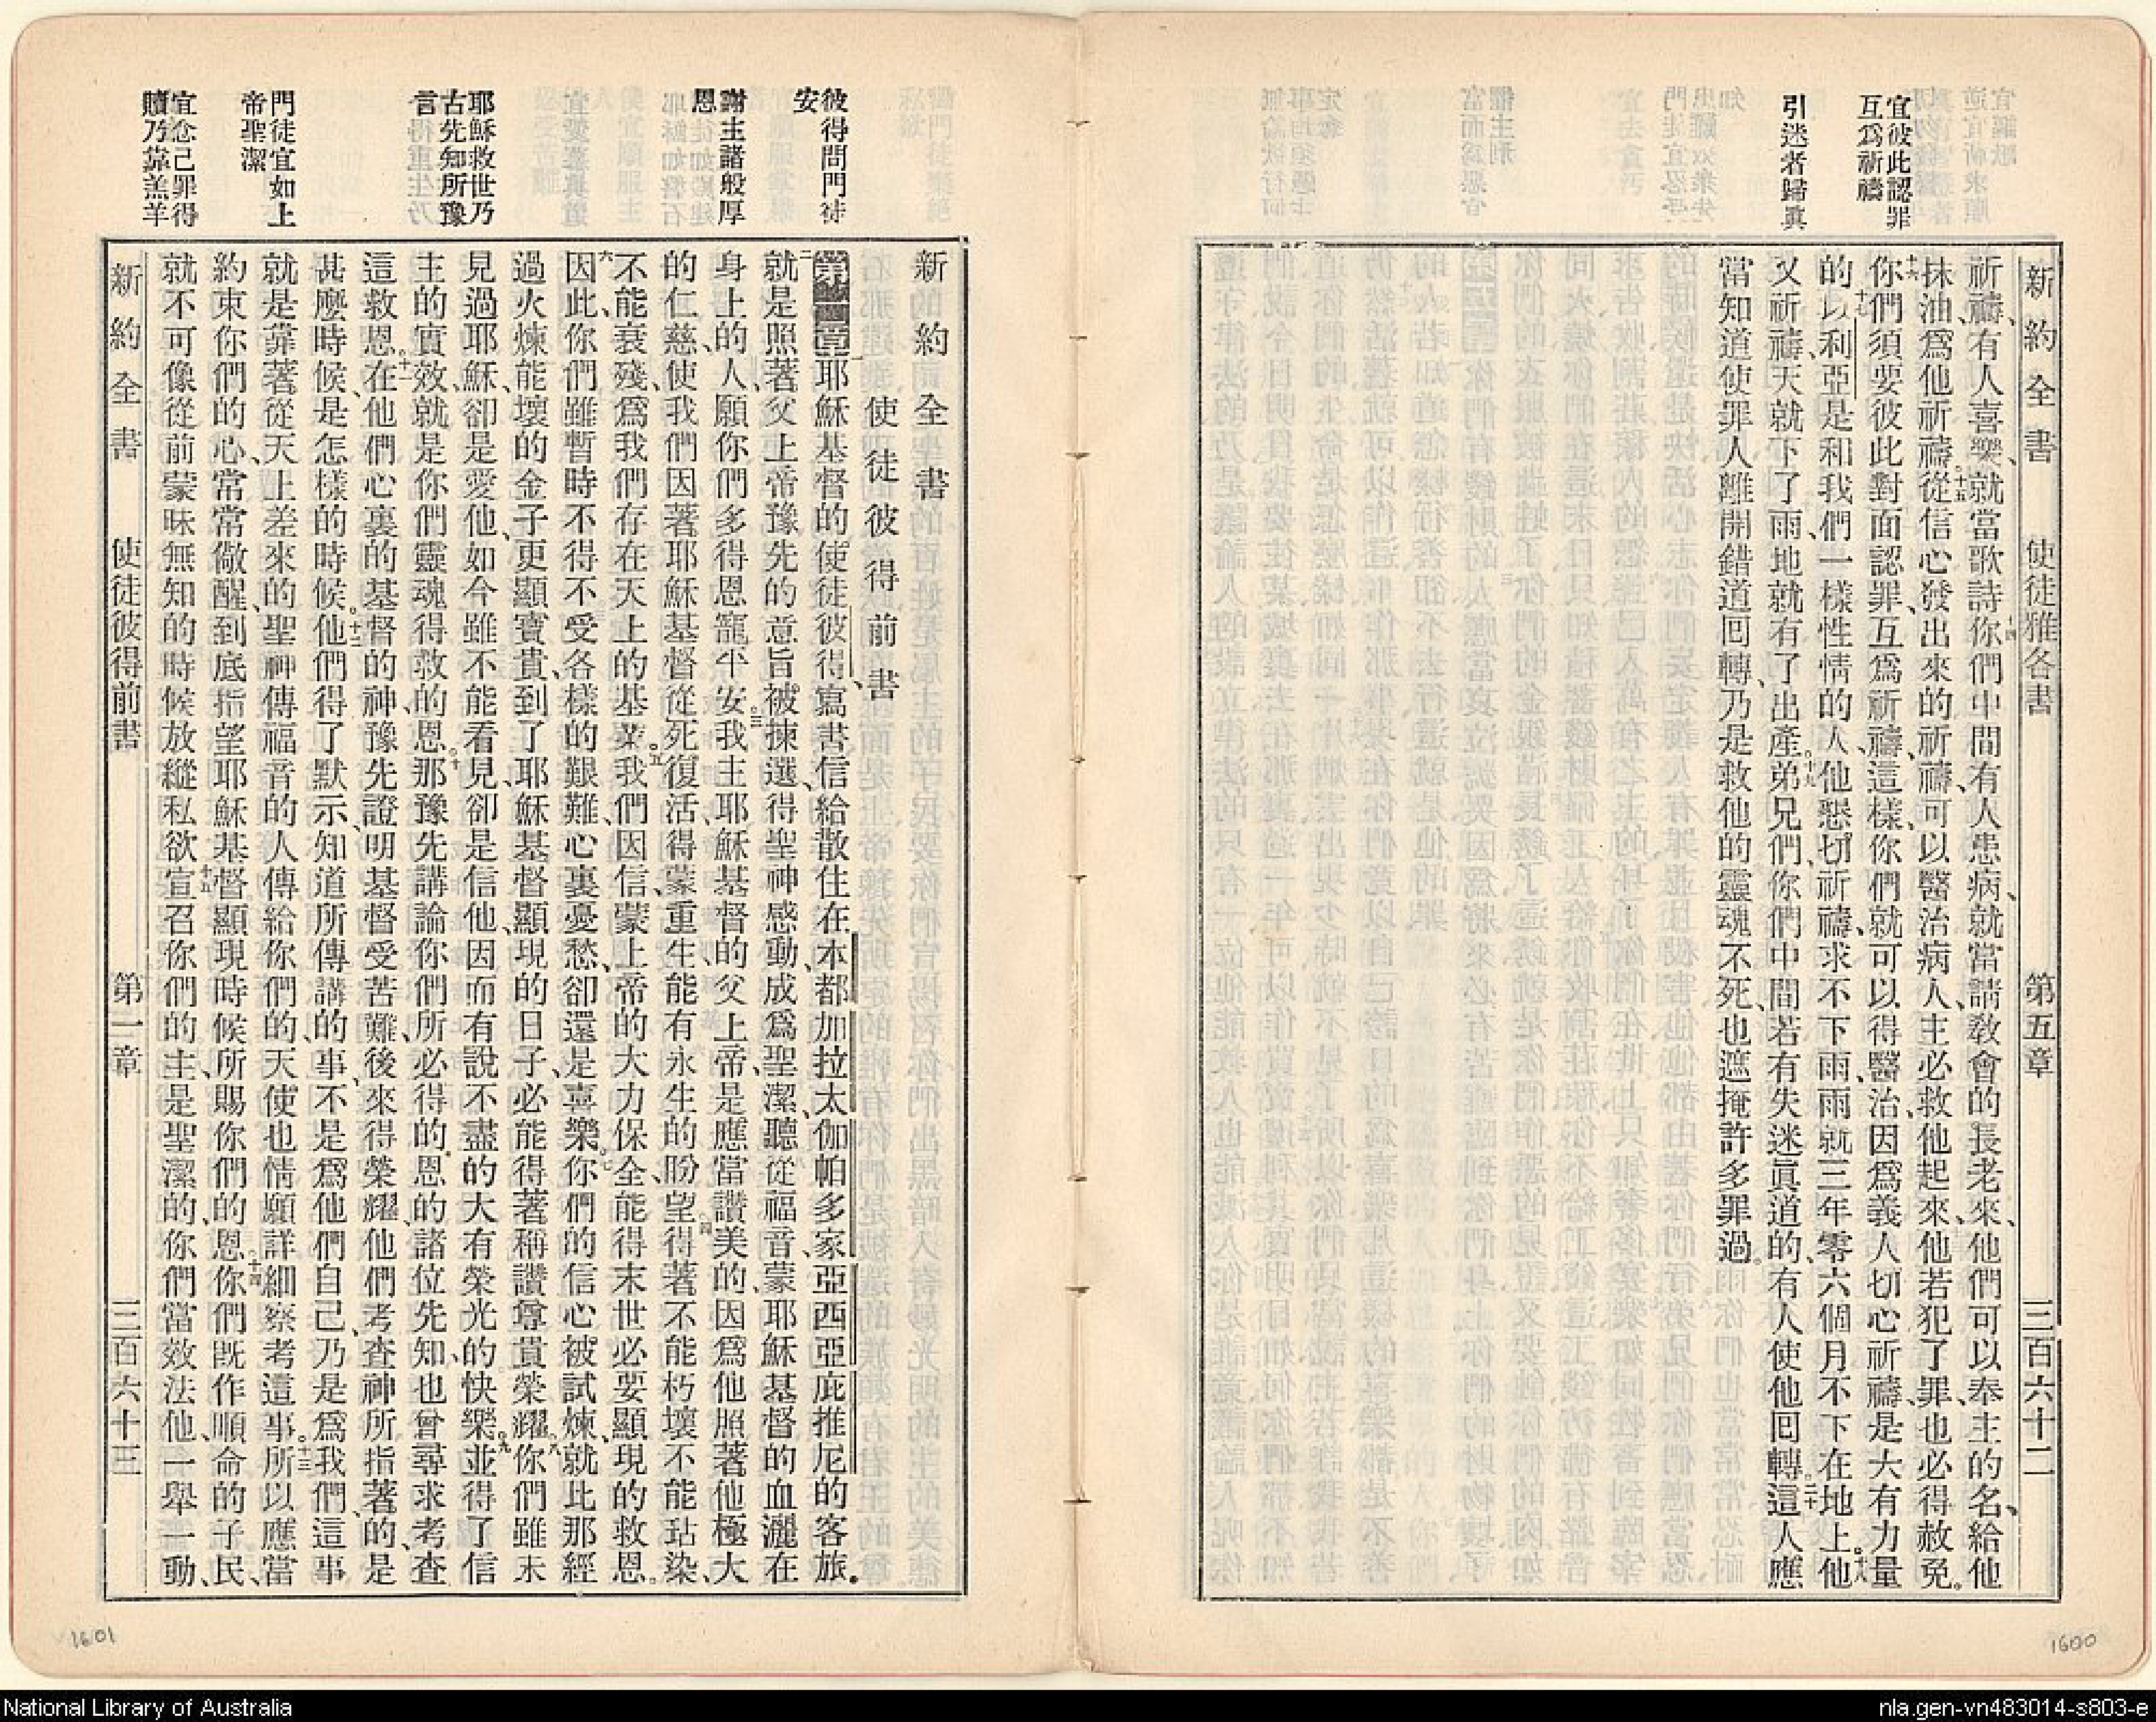 新約全書 使徒雅各書 第五章 三百六十二
宜彼此認罪
互爲祈禱
引迷者歸眞
祈禱、有人喜樂、就當歌詩、十四你們中間有人患病、就當請敎會的長老來、他們可以奉主的名、給他
抹油爲他祈禱。十五從信心發出來的祈禱、可以醫治病人、主必救他起來、他若犯了罪、也必得赦免。
十六你們須要彼此對面認罪、互爲祈禱、這樣、你們就可以得醫治、因爲義人切心祈禱、是大有力量
的。十七以利亞是和我們一樣性情的人、他懇切祈禱、求不下雨、雨就三年零六個月不下在地上。十八他
又祈禱、天就下了雨、地就有了出產。十九弟兄們、你們中間若有失迷眞道的、有人使他回轉。二十這人應
當知道使罪人離開錯道回轉、乃是救他的靈魂不死、也遮掩許多罪過。
彼得問門徒
安
謝主諸般厚
恩
耶穌救世乃
古先知所豫
言
門徒宜如上
帝聖潔
宜念己罪得
贖乃靠羔羊
新約全書
使徒彼得前書
第一章 一耶穌基督的使徒彼得、寫書信給散住在本都加拉太伽帕多家亞西亞庇推尼的客旅。
二就是照著父上帝豫先的意旨被揀選、得聖神感動、成爲聖潔、聽從福音、蒙耶穌基督的血灑在
身上的人、願你們多得恩寵平安。三我主耶穌基督的父上帝、是應當讚美的、因爲他照著他極大
的仁慈、使我們因著耶穌基督從死復活、得蒙重生、能有永生的盼望。四得著不能朽壞不能玷染、
不能衰殘、爲我們存在天上的基業。五我們因信、蒙上帝的大力保全、能得末世必要顯現的救恩。
六因此、你們雖暫時不得不受各樣的艱難、心裏憂愁、卻還是喜樂。七你們的信心被試煉、就比那經
過火煉能壞的金子、更顯寶貴、到了耶穌基督顯現的日子、必能得著稱讚尊貴榮耀。八你們雖未
見過耶穌、卻是愛他、如今雖不能看見、卻是信他、因而有說不盡的大有榮光的快樂。九並得了信
主的實效、就是你們靈魂得救的恩。十那豫先講論你們所必得的恩的諸位先知、也曾尋求考查
這救恩。十一在他們心裏的基督的神、豫先證明基督受苦難、後來得榮耀、他們考查神所指著的、是
甚麼時候、是怎樣的時候。十二他們得了默示、知道所傳講的事、不是爲他們自己、乃是爲我們、這事
就是靠著從天上差來的聖神、傳福音的人、傳給你們的、天使也情願詳細察考這事。十三所以應當
約束你們的心、常常儆醒、到底指望耶穌基督顯現時候、所賜你們的恩。十四你們旣作順命的子民、
就不可像從前蒙昧無知的時候、放縱私欲。十五宣召你們的主是聖潔的、你們當效法他、一舉一動、
新約全書 使徒彼得前書 第一章 三百六十三
1601
1600
National Library of Australia
nla.gen-vn483014-s803-e